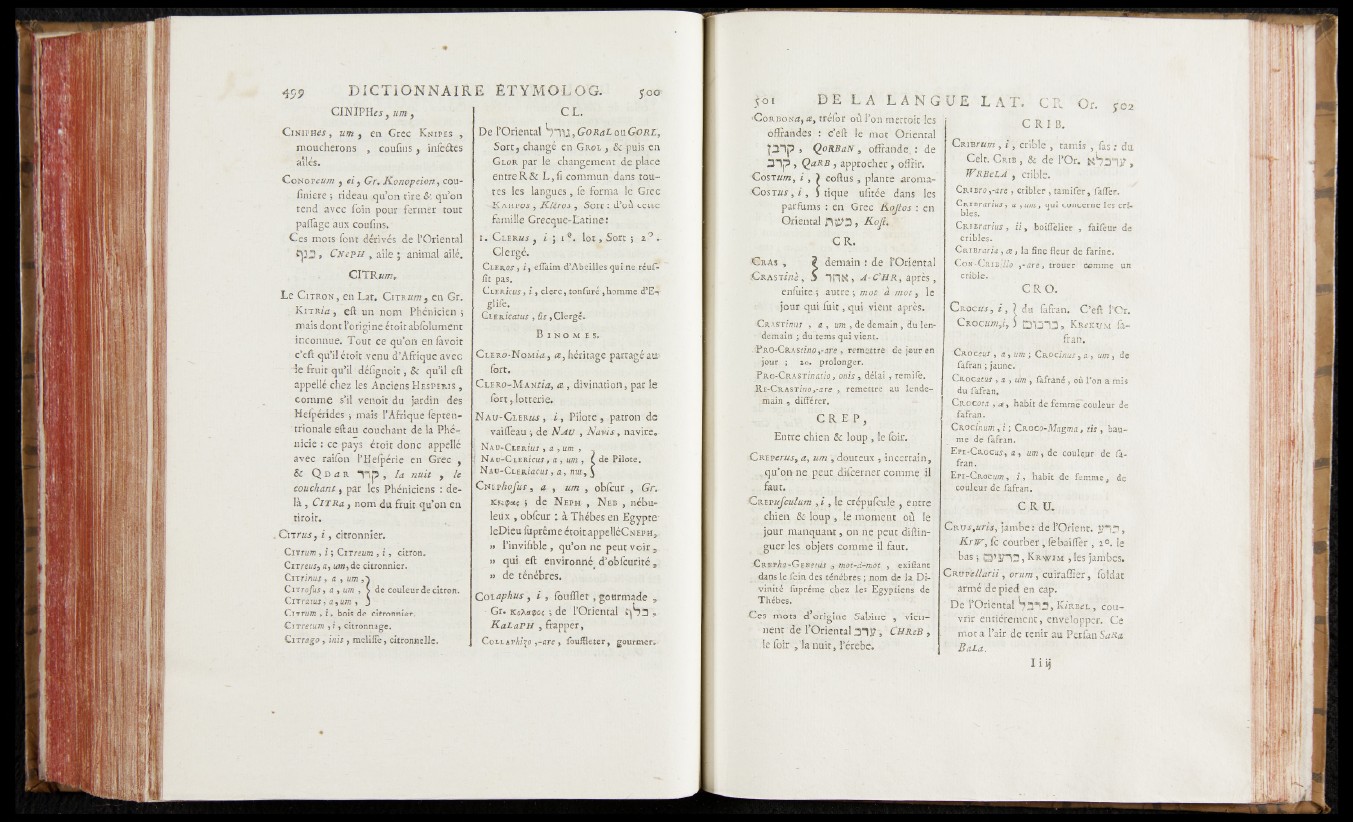 499 DICTIONNAIRE ÉTYMOLOG. 500
CINIPHes, um,
CINIPHes, um, en Grec KNIPES,
moucherons, cousins, insectes
aîlés.
CONOPeum, ei, Gr. Konopeion, cou-
siniere; rideau qu'on tire & qu'on
tend avec soin pour fermer tout
passage aux cousins.
Ces mots sont dérivés de l'Oriental
כנף, CNePH, aile; animal ailé.
CITRum,
Le CITRON, en Lat. CITRUM, en Gr.
KITRia, est un nom Phénicien;
mais dont l'origine étoit absolument
inconnue. Tout ce qu'on en savoit
c'est qu'il étoit venu d'Afrique avec
le fruit qu'il désignoit, & qu'il est
appellé chez les Anciens HESPERIS,
comme s'il venoit du jardin des
Hespérides; mais l'Afrique septen-
trionale est au couchant de la Phé-
nicie: ce pays étoit donc appellé
avec raison l'Hespérie en Grec,
& QDaR קדר, la nuit, le
couchant, par les Phéniciens: de-
là, CITRa, nom du fruit qu'on en
tiroit.
CITRus, i, citronnier.
CITRum, i; CITReum, i, citron.
CITReus, a, um, de citronnier.
CITRinus, a, um,
CITRosus, a, um, } de couleur de citron.
CITRatus, a, um,
CITRum, i, bois de citronnier.
CITRetum, i, citronnage.
CITRago, inis, melisse, citronnelle.
CL.
De l'Oriental גורל, GORaL ou GORL,
Sort, changé en GROL, & puis en
GLOR par le changement de place
entre R & L, si commun dans tou-
tes les langues, se forma le Grec
ΚΛΗΡΟΣ, Kléros, Sort: d'où cette
famille Grecque-Latine:
1. CLERUS, i; 1°. lot, Sort; 2°.
Clergé.
CLEROS, i, essaim d'Abeilles qui ne réus-
sit pas.
CLERicus, i, clerc, tonsuré, homme d'E-
glise.
CLERicatus, ûs, Clergé.
BINOMES.
CLERO-NOMia, æ, héritage partagé au
sort.
CLERO-MANtia, æ, divination, par le
sort, lotterie.
NAU-CLERus, i, Pilote, patron de
vaisseau; de NAU, Navis, navire.
NAU-CLERius, a, um,
NAU-CLERicus, a, um, } de Pilote.
NAU-CLERiacus, a, um,
CNEPhosus, a, um, obscur, Gr.
Κνεφας; de NEPH, NEB, nébu-
leux, obscur: à Thébes en Egypte
le Dieu suprême étoit appellé CNEPH,
» l'invisible, qu'on ne peut voir,
» qui est environné d'obscurité,
» de ténébres.
COLaphus, i, soufflet, gourmade,
Gr. Κολαφος; de l'Oriental כלף,
KaLaPH, frapper,
COLLAPhizo,-are, souffleter, gourmer.
501 DE LA LANGUE LAT. CR Or. 502
CORBONa, æ, trésor où l'on mettoit les
offrandes: c'est le mot Oriental
קרבן, QORBaN, offrande: de
קרב, QaRB, approcher, offrir.
COSTum, i, } costus, plante aroma-
COSTus, i, } tique usitée dans les
parfums: en Grec Kostos: en
Oriental כשת, Kost.
CR.
CRAS, } demain: de l'Oriental
CRASTinè, } אחר, A-CHR, après,
ensuite; autre; mot à mot, le
jour qui suit, qui vient après.
CRASTinus, a, um, de demain, du len-
demain; du tems qui vient.
PRO-CRAStino,-are, remettre de jour en
jour; 2°. prolonger.
PRO-CRASTinatio, onis, délai, remise.
RE-CRASTino,-are, remettre au lende-
main, différer.
CREP,
Entre chien & loup, le soir.
CREPerus, a, um, douteux, incertain,
qu'on ne peut discerner comme il
faut.
CREPusculum, i, le crépuscule, entre
chien & loup, le moment où le
jour manquant, on ne peut distin-
guer les objets comme il faut.
CREPho-GENetus, mot-à-mot, existant
dans le sein des ténébres; nom de la Di-
vinité suprême chez les Egyptiens de
Thébes.
Ces mots d'origine Sabine, vien-
nent de l'Oriental ערב, CHReB,
le soir, la nuit, l'érebe.
CRIB.
CRIBrum, i, crible, tamis, sas: du
Celt. CRIB, & de l'Or. ערבלא,
WRBeLA, crible.
CRIBro,-are, cribler, tamiser, sasser.
CRIBrarius, a, um, qui concerne les cri-
bles.
CRIBrarius, ii, boisselier, faiseur de
cribles.
CRIBraria, æ, la fine fleur de farine.
CON-CRIBillo,-are, trouer comme un
crible.
CRO.
CROCus, i, } du safran. C'est l'Or.
CROCum, i, } כרכום, KRoKUM sa-
fran.
CROCeus, a, um; CROCinus, a, um, de
safran; jaune.
CROCatus, a, um, safrané, où l'on a mis
du safran.
CROCota, æ, habit de femme couleur de
safran.
CROCinum, i; CROCo-Magma, tis, bau-
me de safran.
EPI-CROCus, a, um, de couleur de sa-
fran.
EPI-CROCum, i, habit de femme, de
couleur de safran.
CRU.
CRUS, uris, jambe: de l'Orient. כרע,
KrW, se courber, se baisser, 2°. le
bas; כרעים, KRWIM, les jambes.
CRUPellarii, orum, cuirassier, soldat
armé de pied en cap.
De l'Oriental כרבל, KiRBeL, cou-
vrir entiérement, envelopper. Ce
mot a l'air de tenir au Persan SaRa
BaLa.
I i ij